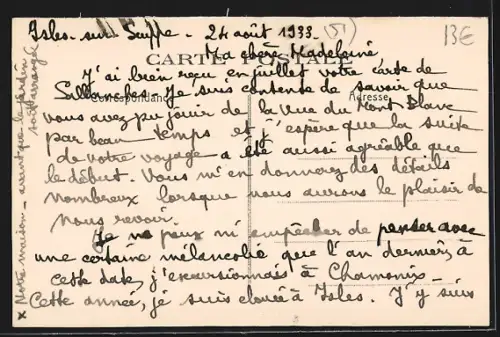 Isles-sur-Suippe - 24 août 1933. (51)
13€
CARTE POSTALE
Ma chère Madeleine
J'ai bien reçu en juillet votre carte de
Sallanches. Je suis contente de savoir que
Correspondance
Adresse
vous avez pu jouir de la vue du Mont Blanc
par beau temps et j'espère que la suite
de votre voyage a été aussi agréable que
le début. Vous m'en donnerez des détails
nombreux lorsque nous aurons le plaisir de
nous revoir.
Je ne peux m'empêcher de penser avec
une certaine mélancolie que l'an dernier, à
cette date, j'excursionnais à Chamonix.
Cette année, je suis clouée à Isles. J'y suis
x Notre maison - avant que le jardin
soit arrangé